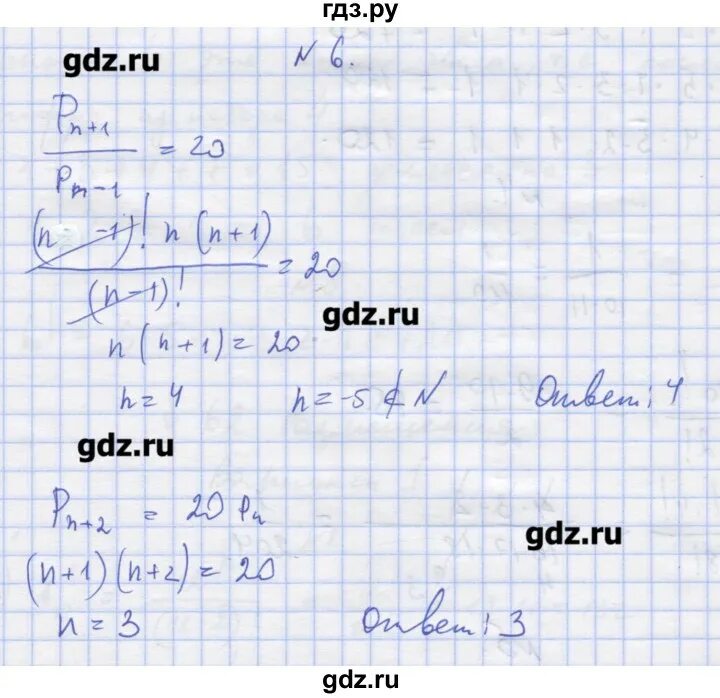 гдз.ру
gdz.ru
N 6.
P_{n+1} / P_{m-1} = 20
(n -1)! n (n+1) / (n-1)! = 20
gdz.ru
n (n+1) = 20
n = 4 n = -5 ∉ N Ответ: 4
gdz.ru
P_{n+2} = 20 P_n
gdz.ru
(n+1) (n+2) = 20
n = 3 Ответ: 3
gdz.ru